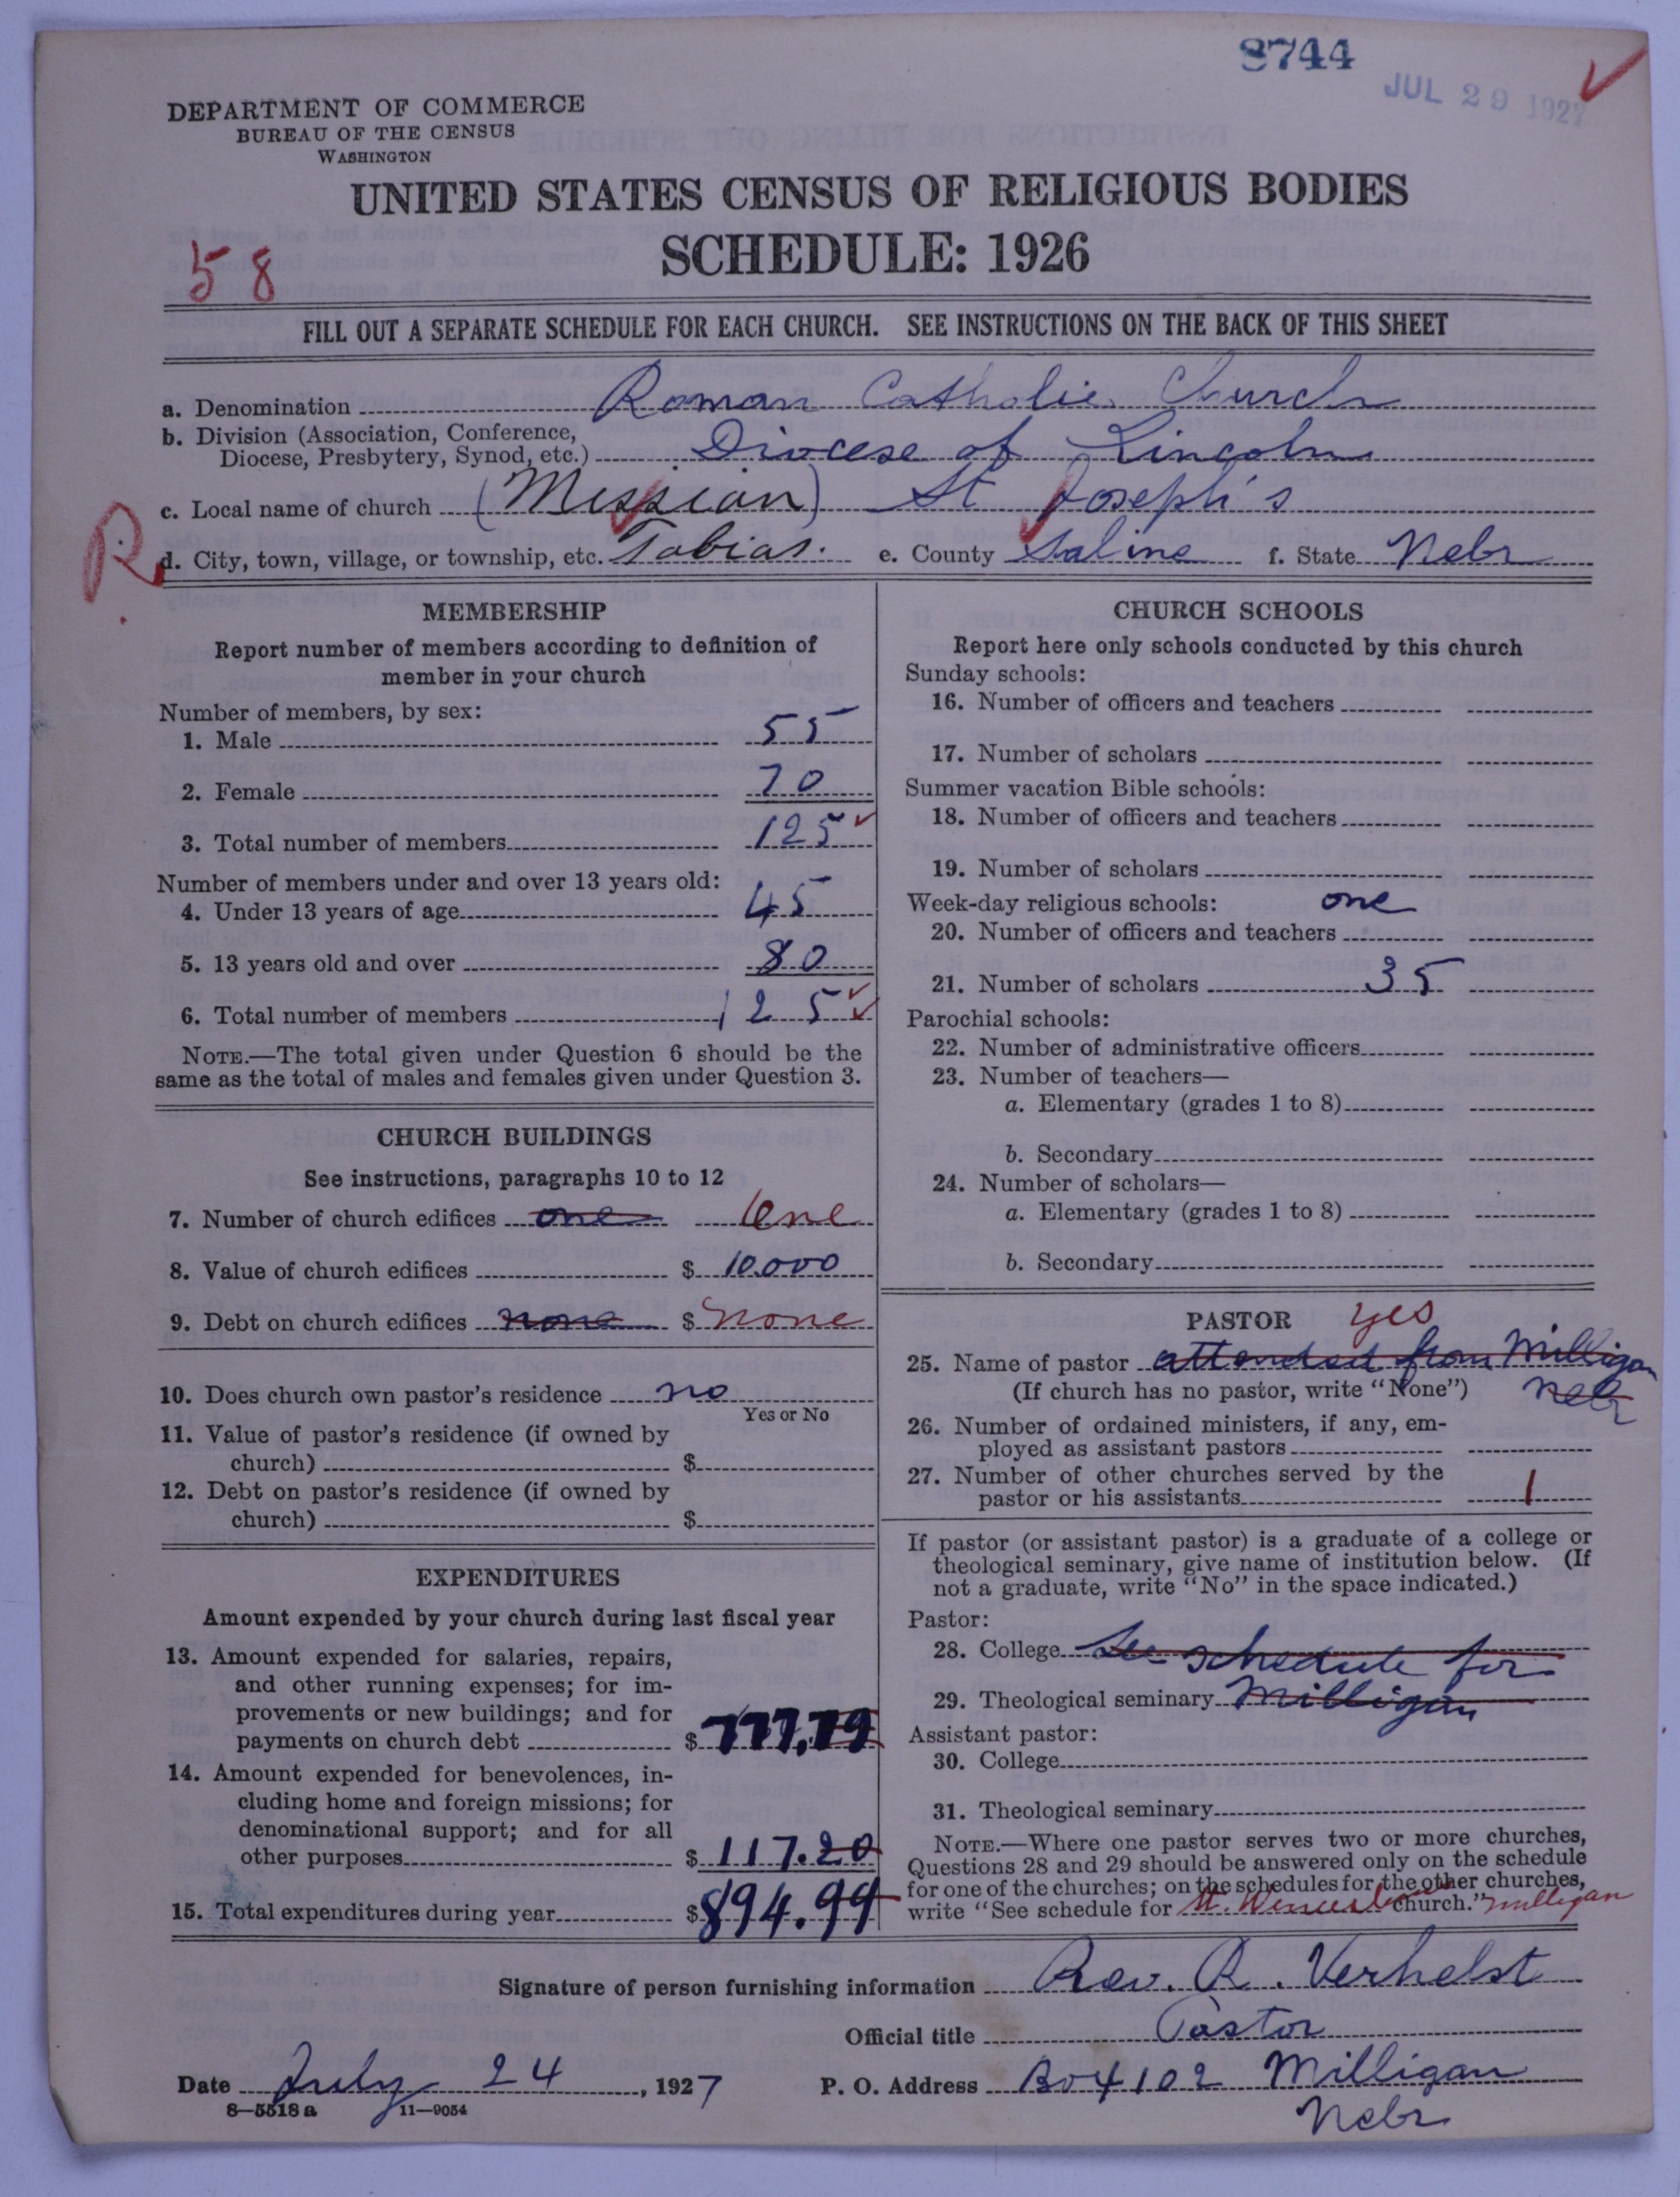 8744
JUL 29 1927
DEPARTMENT OF COMMERCE
BUREAU OF THE CENSUS
WASHINGTON
UNITED STATES CENSUS OF RELIGIOUS BODIES
SCHEDULE: 1926
58
FILL OUT A SEPARATE SCHEDULE FOR EACH CHURCH. SEE INSTRUCTIONS ON THE BACK OF THIS SHEET
a. Denomination Roman Catholic Church
b. Division (Association, Conference, Diocese, Presbytery, Synod, etc.) Diocese of Lincoln
c. Local name of church (Mission) St Joseph's
R
d. City, town, village, or township, etc. Tobias. e. County Saline f. State Nebr
MEMBERSHIP
Report number of members according to definition of
member in your church
Number of members, by sex:
1. Male 55
2. Female 70
3. Total number of members 125
Number of members under and over 13 years old:
4. Under 13 years of age 45
5. 13 years old and over 80
6. Total number of members 125
NOTE.—The total given under Question 6 should be the
same as the total of males and females given under Question 3.
CHURCH BUILDINGS
See instructions, paragraphs 10 to 12
7. Number of church edifices one One
8. Value of church edifices $ 10.000
9. Debt on church edifices none $ none
10. Does church own pastor's residence no
Yes or No
11. Value of pastor's residence (if owned by
church) $
12. Debt on pastor's residence (if owned by
church) $
EXPENDITURES
Amount expended by your church during last fiscal year
13. Amount expended for salaries, repairs,
and other running expenses; for im-
provements or new buildings; and for
payments on church debt $ 777.79
14. Amount expended for benevolences, in-
cluding home and foreign missions; for
denominational support; and for all
other purposes $ 117.20
15. Total expenditures during year $ 894.99
CHURCH SCHOOLS
Report here only schools conducted by this church
Sunday schools:
16. Number of officers and teachers
17. Number of scholars
Summer vacation Bible schools:
18. Number of officers and teachers
19. Number of scholars
Week-day religious schools: one
20. Number of officers and teachers
21. Number of scholars 35
Parochial schools:
22. Number of administrative officers
23. Number of teachers—
a. Elementary (grades 1 to 8)
b. Secondary
24. Number of scholars—
a. Elementary (grades 1 to 8)
b. Secondary
PASTOR yes
25. Name of pastor attended from Milligan
(If church has no pastor, write "None") Nebr
26. Number of ordained ministers, if any, em-
ployed as assistant pastors
27. Number of other churches served by the
pastor or his assistants 1
If pastor (or assistant pastor) is a graduate of a college or
theological seminary, give name of institution below. (If
not a graduate, write "No" in the space indicated.)
Pastor:
28. College See schedule for
29. Theological seminary Milligan
Assistant pastor:
30. College
31. Theological seminary
NOTE.—Where one pastor serves two or more churches,
Questions 28 and 29 should be answered only on the schedule
for one of the churches; on the schedules for the other churches,
write "See schedule for St. church." Milligan
Signature of person furnishing information Rev. R. Verhelst
Official title Pastor
Date July 24, 1927 P. O. Address Box 102 Milligan
Nebr
8—5518 a 11—9054